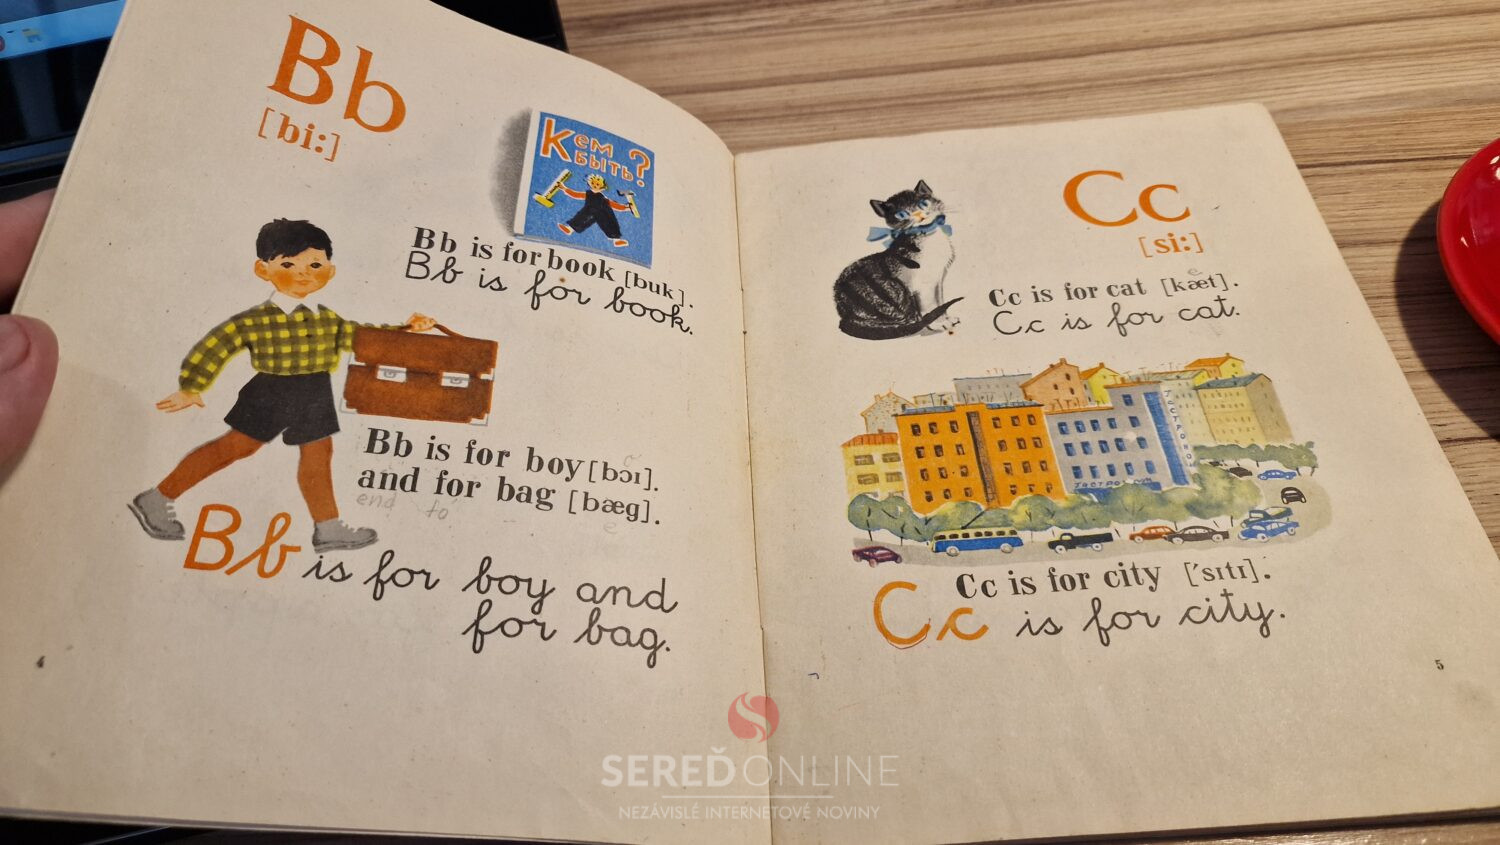 Bb
[bi:]
Кем
быть?
Bb is for book [buk].
Bb is for book.
Bb is for boy [bɔɪ].
and for bag [bæg].
end to
e
Bb is for boy and
for bag.
4
Cc
[si:]
e
Cc is for cat [kæt].
Cc is for cat.
Гастроном
Гастроном
Cc is for city ['sɪtɪ].
Cc is for city.
5
SEREĎONLINE
NEZÁVISLÉ INTERNETOVÉ NOVINY